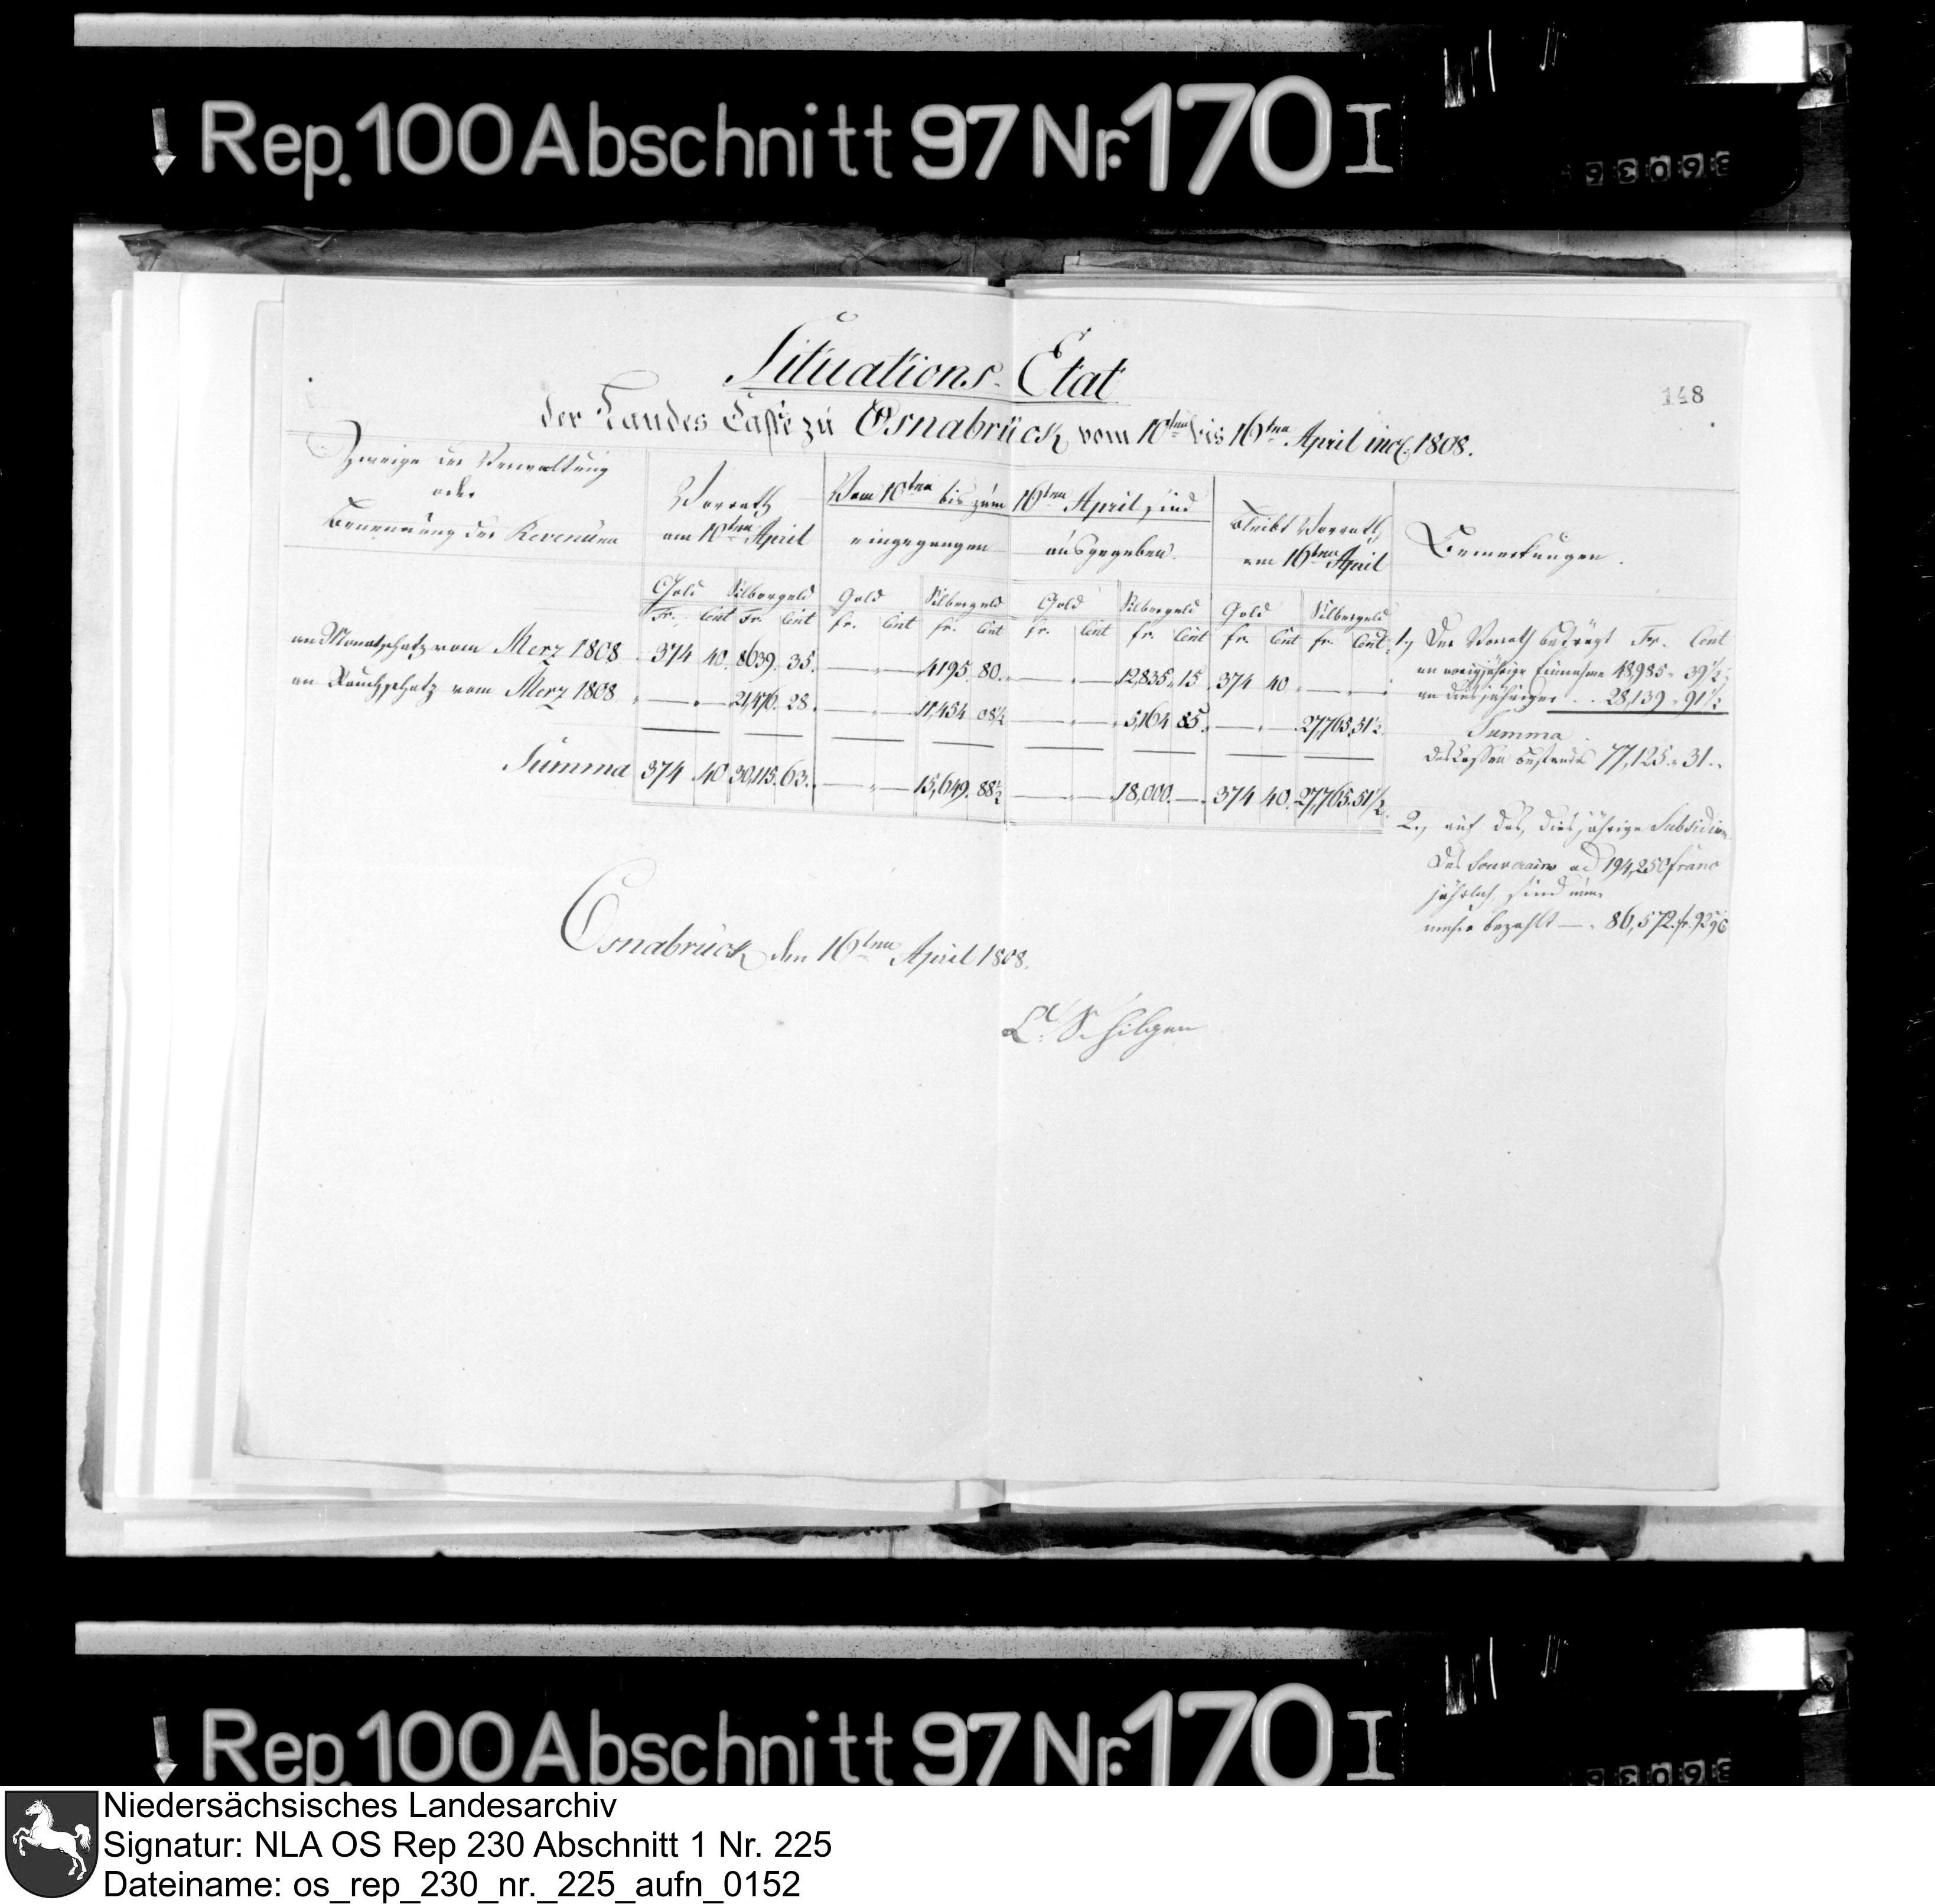 Rep. 100 Abschnitt 97 Nr. 170 I
36036
148
Situations-Etat
der Landes Casse zu Osnabrück vom 10ten bis 16ten April incl. 1808.
Zweige der Verwaltung
oder
Benennung der Revenüen
Vorrath
am 10ten April
Vom 10ten bis zum 16ten April sind
eingegangen
ausgegeben.
Bleibt Vorrath
am 16ten April
Bemerkungen.
Gold Silbergeld Gold Silbergeld Gold Silbergeld Gold Silbergeld
Fr. Cent Fr. Cent fr. Cent fr. Cent fr. Cent fr. Cent fr. Cent fr. Cent
an Monatschatz vom Merz 1808 374 40. 8639. 35. — " — 4195. 80. — " — 12,835. 15. 374 40 — " —
an Rauchschatz vom Merz 1808. — " — 21,476. 28. — " — 11,454 08½ — " — 5,164 85. — " — 27,765. 51½
Summa 374 40 30,115. 63. — " — 15,649. 88½ — " — 18,000. — 374 40. 27,765. 51½.
1., Der Vorrath beträgt Fr. Cent
an vorigjähriger Einnahme 48,985 " 39½
an diesjähriger .. 28,139 " 91½
Summa
des Cassen Bestands 77,125 " 31.
2., auf das diesjährige Subsidium
des Souverains ad 194,250 franc
jährlich, sind nun-
mehr bezahlt — . 86,572 fr. 92 c
Osnabrück den 16ten April 1808.
Schilgen
Rep. 100 Abschnitt 97 Nr. 170 I
36036
Niedersächsisches Landesarchiv
Signatur: NLA OS Rep 230 Abschnitt 1 Nr. 225
Dateiname: os_rep_230_nr._225_aufn_0152